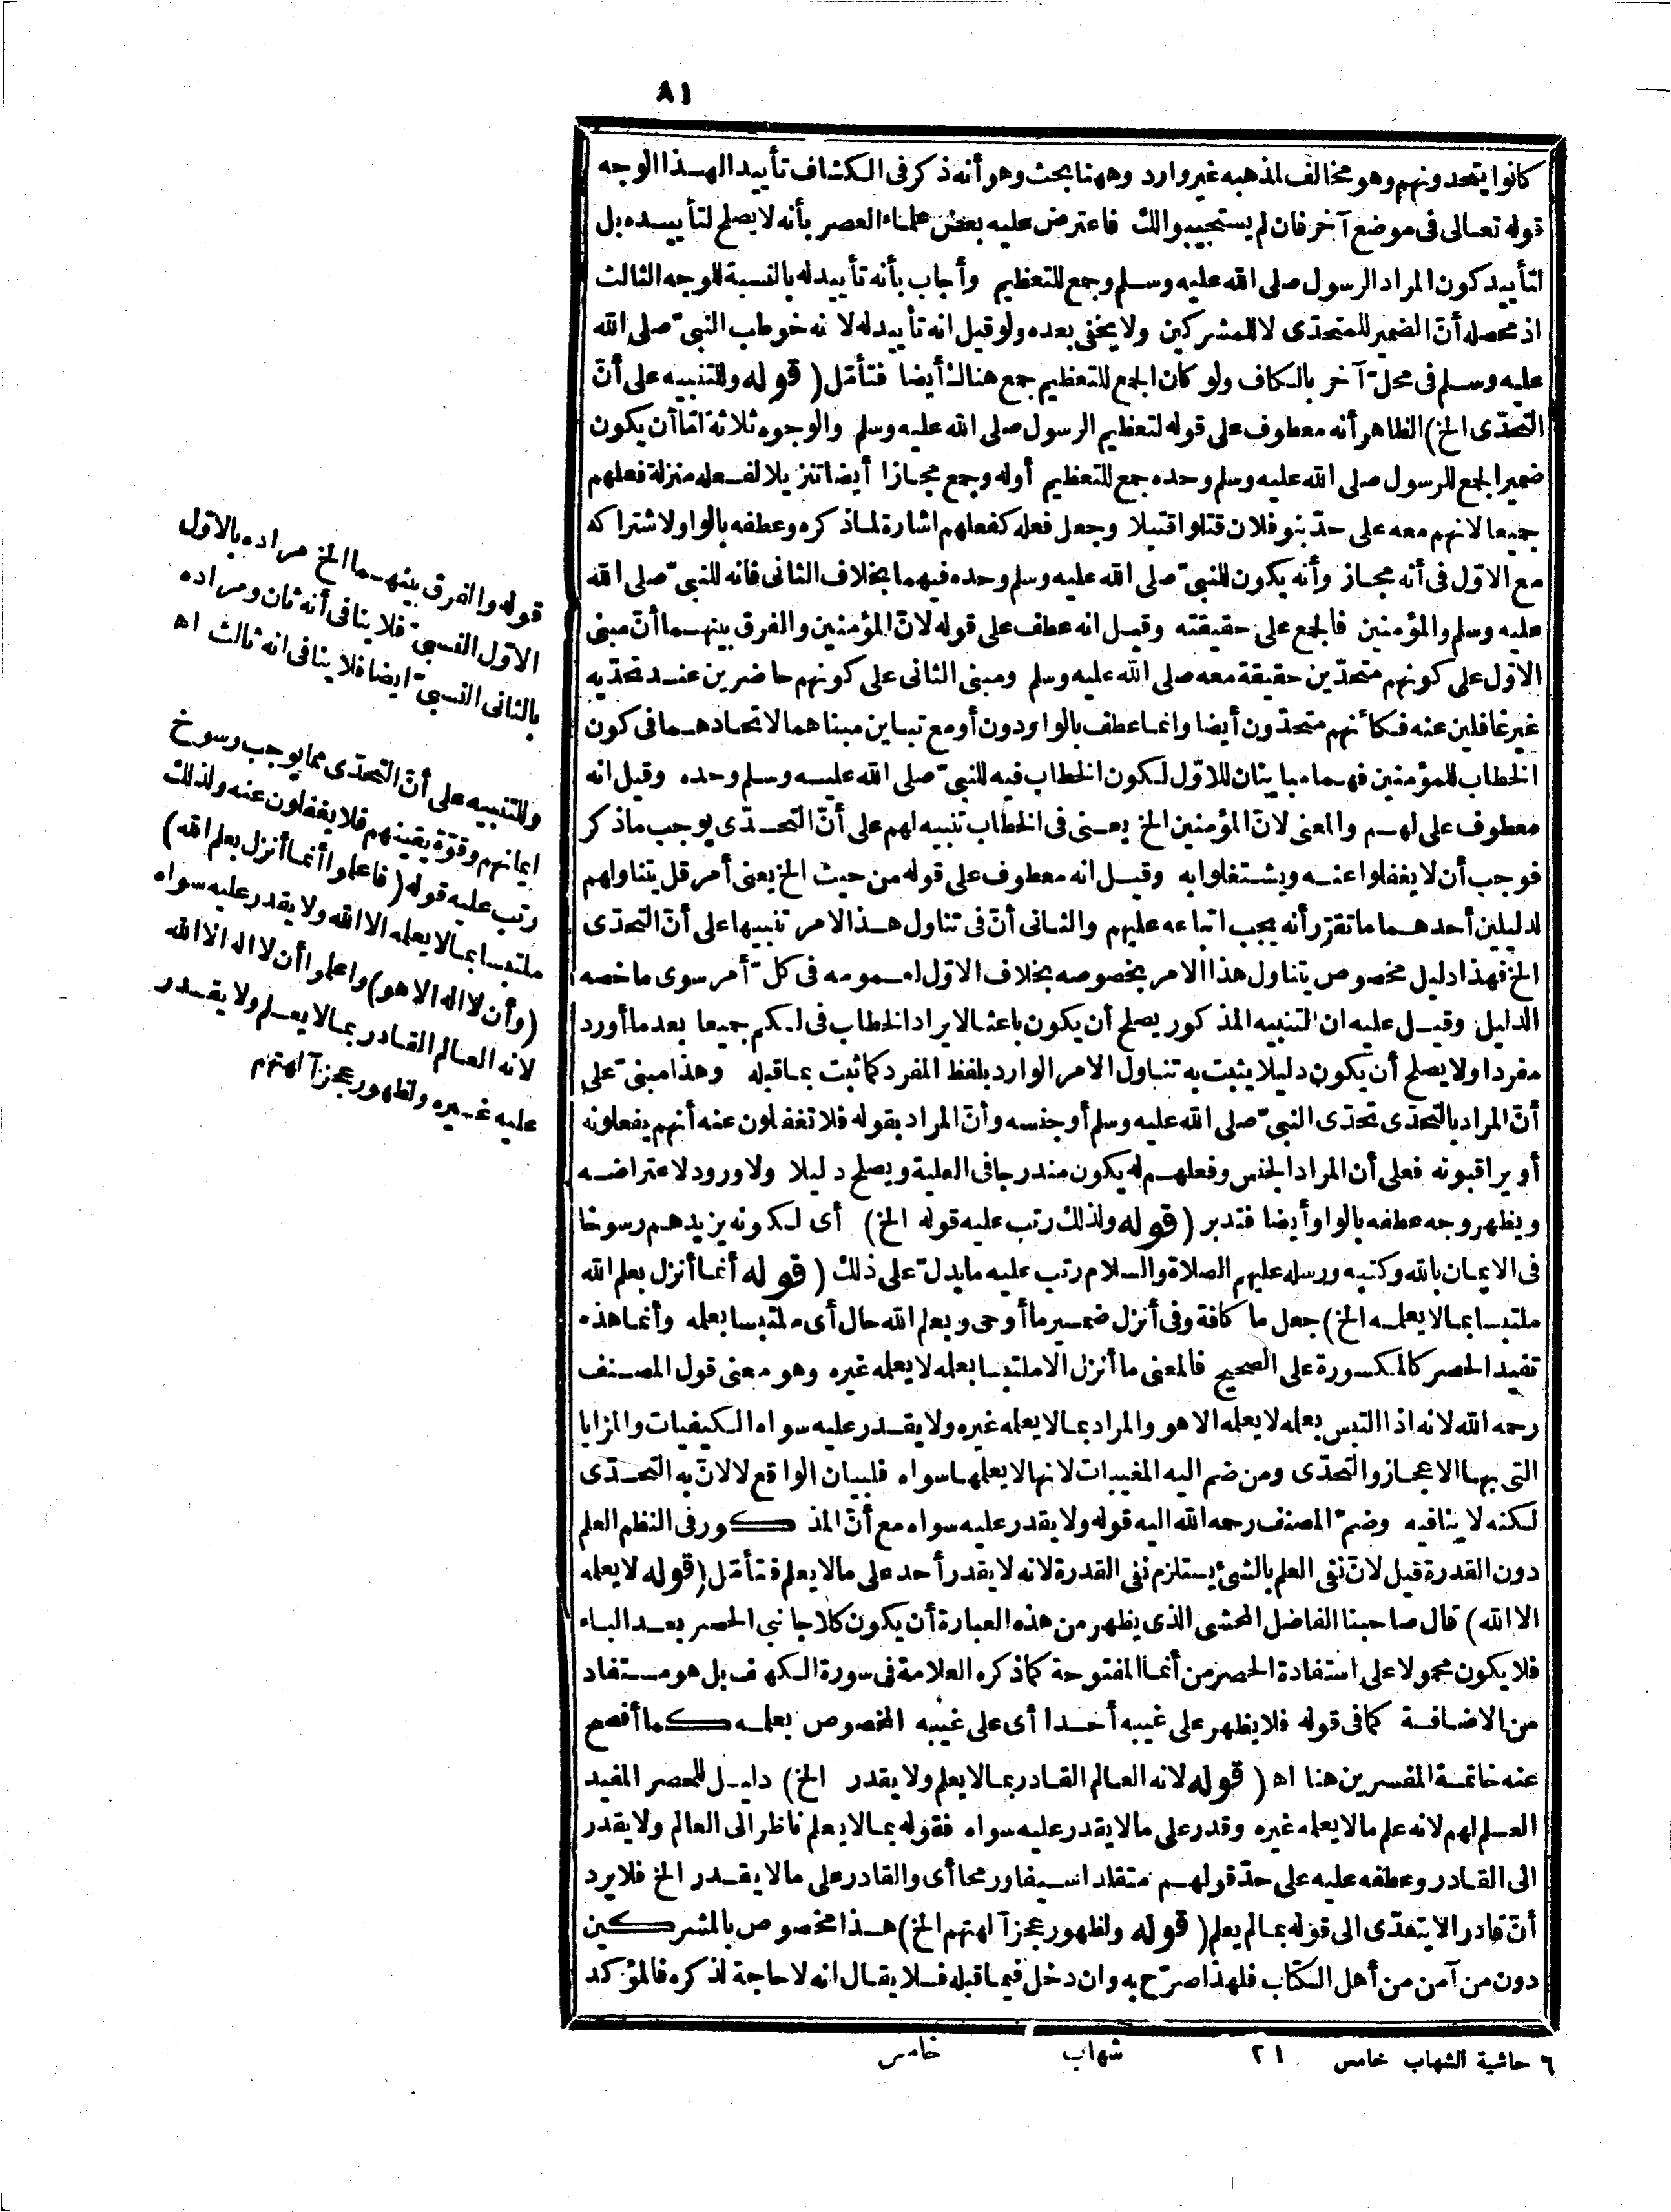 ٨١
كانوا يتحدونهم وهو مخالف لمذهبه غير وارد وههنا بحث وهو أنه ذكر في الكشاف تأييدا لهذا الوجه
قوله تعالى في موضع آخر فان لم يستجيبوا لك فاعترض عليه بعض علماء العصر بأنه لا يصلح لتأييده بل
لتأييد كون المراد الرسول صلى الله عليه وسلم وجمع للتعظيم وأجاب بأنه تأييد له بالنسبة للوجه الثالث
اذ محصله أنّ الضمير للمتحدّى لا للمشركين ولا يخفى بعده ولو قيل انه تأييد له لانه خوطب النبيّ صلى الله
عليه وسلم في محلّ آخر بالكاف ولو كان الجمع للتعظيم جمع هنالك أيضا فتأمّل (قوله وللتنبيه على أنّ
التحدّى الخ) الظاهر أنه معطوف على قوله لتعظيم الرسول صلى الله عليه وسلم والوجوه ثلاثة امّا أن يكون
ضمير الجمع للرسول صلى الله عليه وسلم وحده جمع للتعظيم أوله وجمع مجازا أيضا تنزيلا لفعله منزلة فعلهم
جميعا لانهم معه على حدّ بنو فلان قتلوا قتيلا وجعل فعله كفعلهم اشارة لما ذكره وعطفه بالواو لاشتراكه
مع الاوّل في أنه مجاز وأنه يكون للنبيّ صلى الله عليه وسلم وحده فيهما بخلاف الثاني فانه للنبيّ صلى الله
عليه وسلم والمؤمنين فالجمع على حقيقته وقيل انه عطف على قوله لانّ المؤمنين والفرق بينهما أنّ مبنى
الاوّل على كونهم متحدّين حقيقة معه صلى الله عليه وسلم ومبنى الثاني على كونهم حاضرين عند تحدّيه
غير غافلين عنه فكأنهم متحدّون أيضا وانما عطف بالواو دون أو مع تباين مبناهما لاتحادهما في كون
الخطاب للمؤمنين فهما مباينان للاوّل لكون الخطاب فيه للنبيّ صلى الله عليه وسلم وحده وقيل انه
معطوف على لهم والمعنى لانّ المؤمنين الخ يعني في الخطاب تنبيه لهم على أنّ التحدّى يوجب ما ذكر
فوجب أن لا يغفلوا عنه ويشتغلوا به وقيل انه معطوف على قوله من حيث الخ يعني أمر قل يتناولهم
لدليلين أحدهما ما تقرّر أنه يجب اتباعه عليهم والثاني أنّ في تناول هذا الامر تنبيها على أنّ التحدّى
الخ فهذا دليل مخصوص يتناول هذا الامر بخصوصه بخلاف الاوّل لعمومه في كلّ أمر سوى ما خصه
الدليل وقيل عليه ان التنبيه المذكور يصلح أن يكون باعثا لايراد الخطاب في لكم جميعا بعد ما أورد
مفردا ولا يصلح أن يكون دليلا يثبت به تناول الامر الوارد بلفظ المفرد كما ثبت بما قبله وهذا مبنيّ على
أنّ المراد بالتحدّى تحدّى النبيّ صلى الله عليه وسلم أو جنسه وأنّ المراد بقوله فلا تغفلون عنه أنهم يفعلونه
أو يراقبونه فعلى أن المراد الجنس وفعلهم له يكون مندرجا في العلية ويصلح دليلا ولا ورود لاعتراضه
ويظهر وجه عطفه بالواو أيضا فتدبر (قوله ولذلك رتب عليه قوله الخ) أى لكونه يزيدهم رسوخا
في الايمان بالله وكتبه ورسله عليهم الصلاة والسلام رتب عليه ما يدلّ على ذلك (قوله أنما أنزل بعلم الله
ملتبسا بما لا يعلمه الخ) جعل ما كافة وفي أنزل ضمير ما أوحى وبعلم الله حال أى ملتبسا بعلمه وأنما هذه
تفيد الحصر كالمكسورة على الصحيح فالمعنى ما أنزل الا ملتبسا بعلمه لا يعلمه غيره وهو معنى قول المصنف
رحمه الله لانه اذا التبس بعلمه لا يعلمه الا هو والمراد بما لا يعلمه غيره ولا يقدر عليه سواه الكيفيات والمزايا
التى بها الاعجاز والتحدّى ومن ضم اليه المغيبات لانها لا يعلمها سواه فلبيان الواقع لا لانّ به التحدّى
لكنه لا ينافيه وضمّ المصنف رحمه الله اليه قوله ولا يقدر عليه سواه مع أنّ المذكور في النظم العلم
دون القدرة قيل لانّ نفى العلم بالشئ يستلزم نفى القدرة لانه لا يقدر أحد على ما لا يعلم فتأمّل (قوله لا يعلمه
الا الله) قال صاحبنا الفاضل المحشى الذى يظهر من هذه العبارة أن يكون كلا جانبى الحصر بعد الباء
فلا يكون محمولا على استفادة الحصر من أنما المفتوحة كما ذكره العلامة في سورة الكهف بل هو مستفاد
من الاضافة كما في قوله فلا يظهر على غيبه أحدا أى على غيبه المخصوص بعلمه كما أفصح
عنه خاتمة المفسرين هنا اه (قوله لانه العالم القادر بما لا يعلم ولا يقدر الخ) دليل للحصر المفيد
العلم لهم لانه علم ما لا يعلمه غيره وقدر على ما لا يقدر عليه سواه فقوله بما لا يعلم ناظر الى العالم ولا يقدر
الى القادر وعطفه عليه على حدّ قولهم متقلدا سيفا ورمحا أى والقادر على ما لا يقدر الخ فلا يرد
أنّ قادر الا يتعدّى الى قوله بما لم يعلم (قوله ولظهور عجز آلهتهم الخ) هذا مخصوص بالمشركين
دون من آمن من أهل الكتاب فلهذا صرّح به وان دخل فيما قبله فلا يقال انه لا حاجة لذكره فالمؤكد
قوله والفرق بينهما الخ مراده بالاوّل
الاوّل النسبيّ فلا ينافى أنه ثان ومراده
بالثانى النسبيّ ايضا فلا ينافى انه ثالث اه
وللتنبيه على أنّ التحدّى مما يوجب رسوخ
ايمانهم وقوّة يقينهم فلا يغفلون عنه ولذلك
رتب عليه قوله (فاعلموا أنما أنزل بعلم الله)
ملتبسا بما لا يعلمه الا الله ولا يقدر عليه سواه
(وأن لا اله الا هو) واعلموا أن لا اله الا الله
لانه العالم القادر بما لا يعلم ولا يقدر
عليه غيره ولظهور عجز آلهتهم
٦ حاشية الشهاب خامس ٢١ شهاب خامس